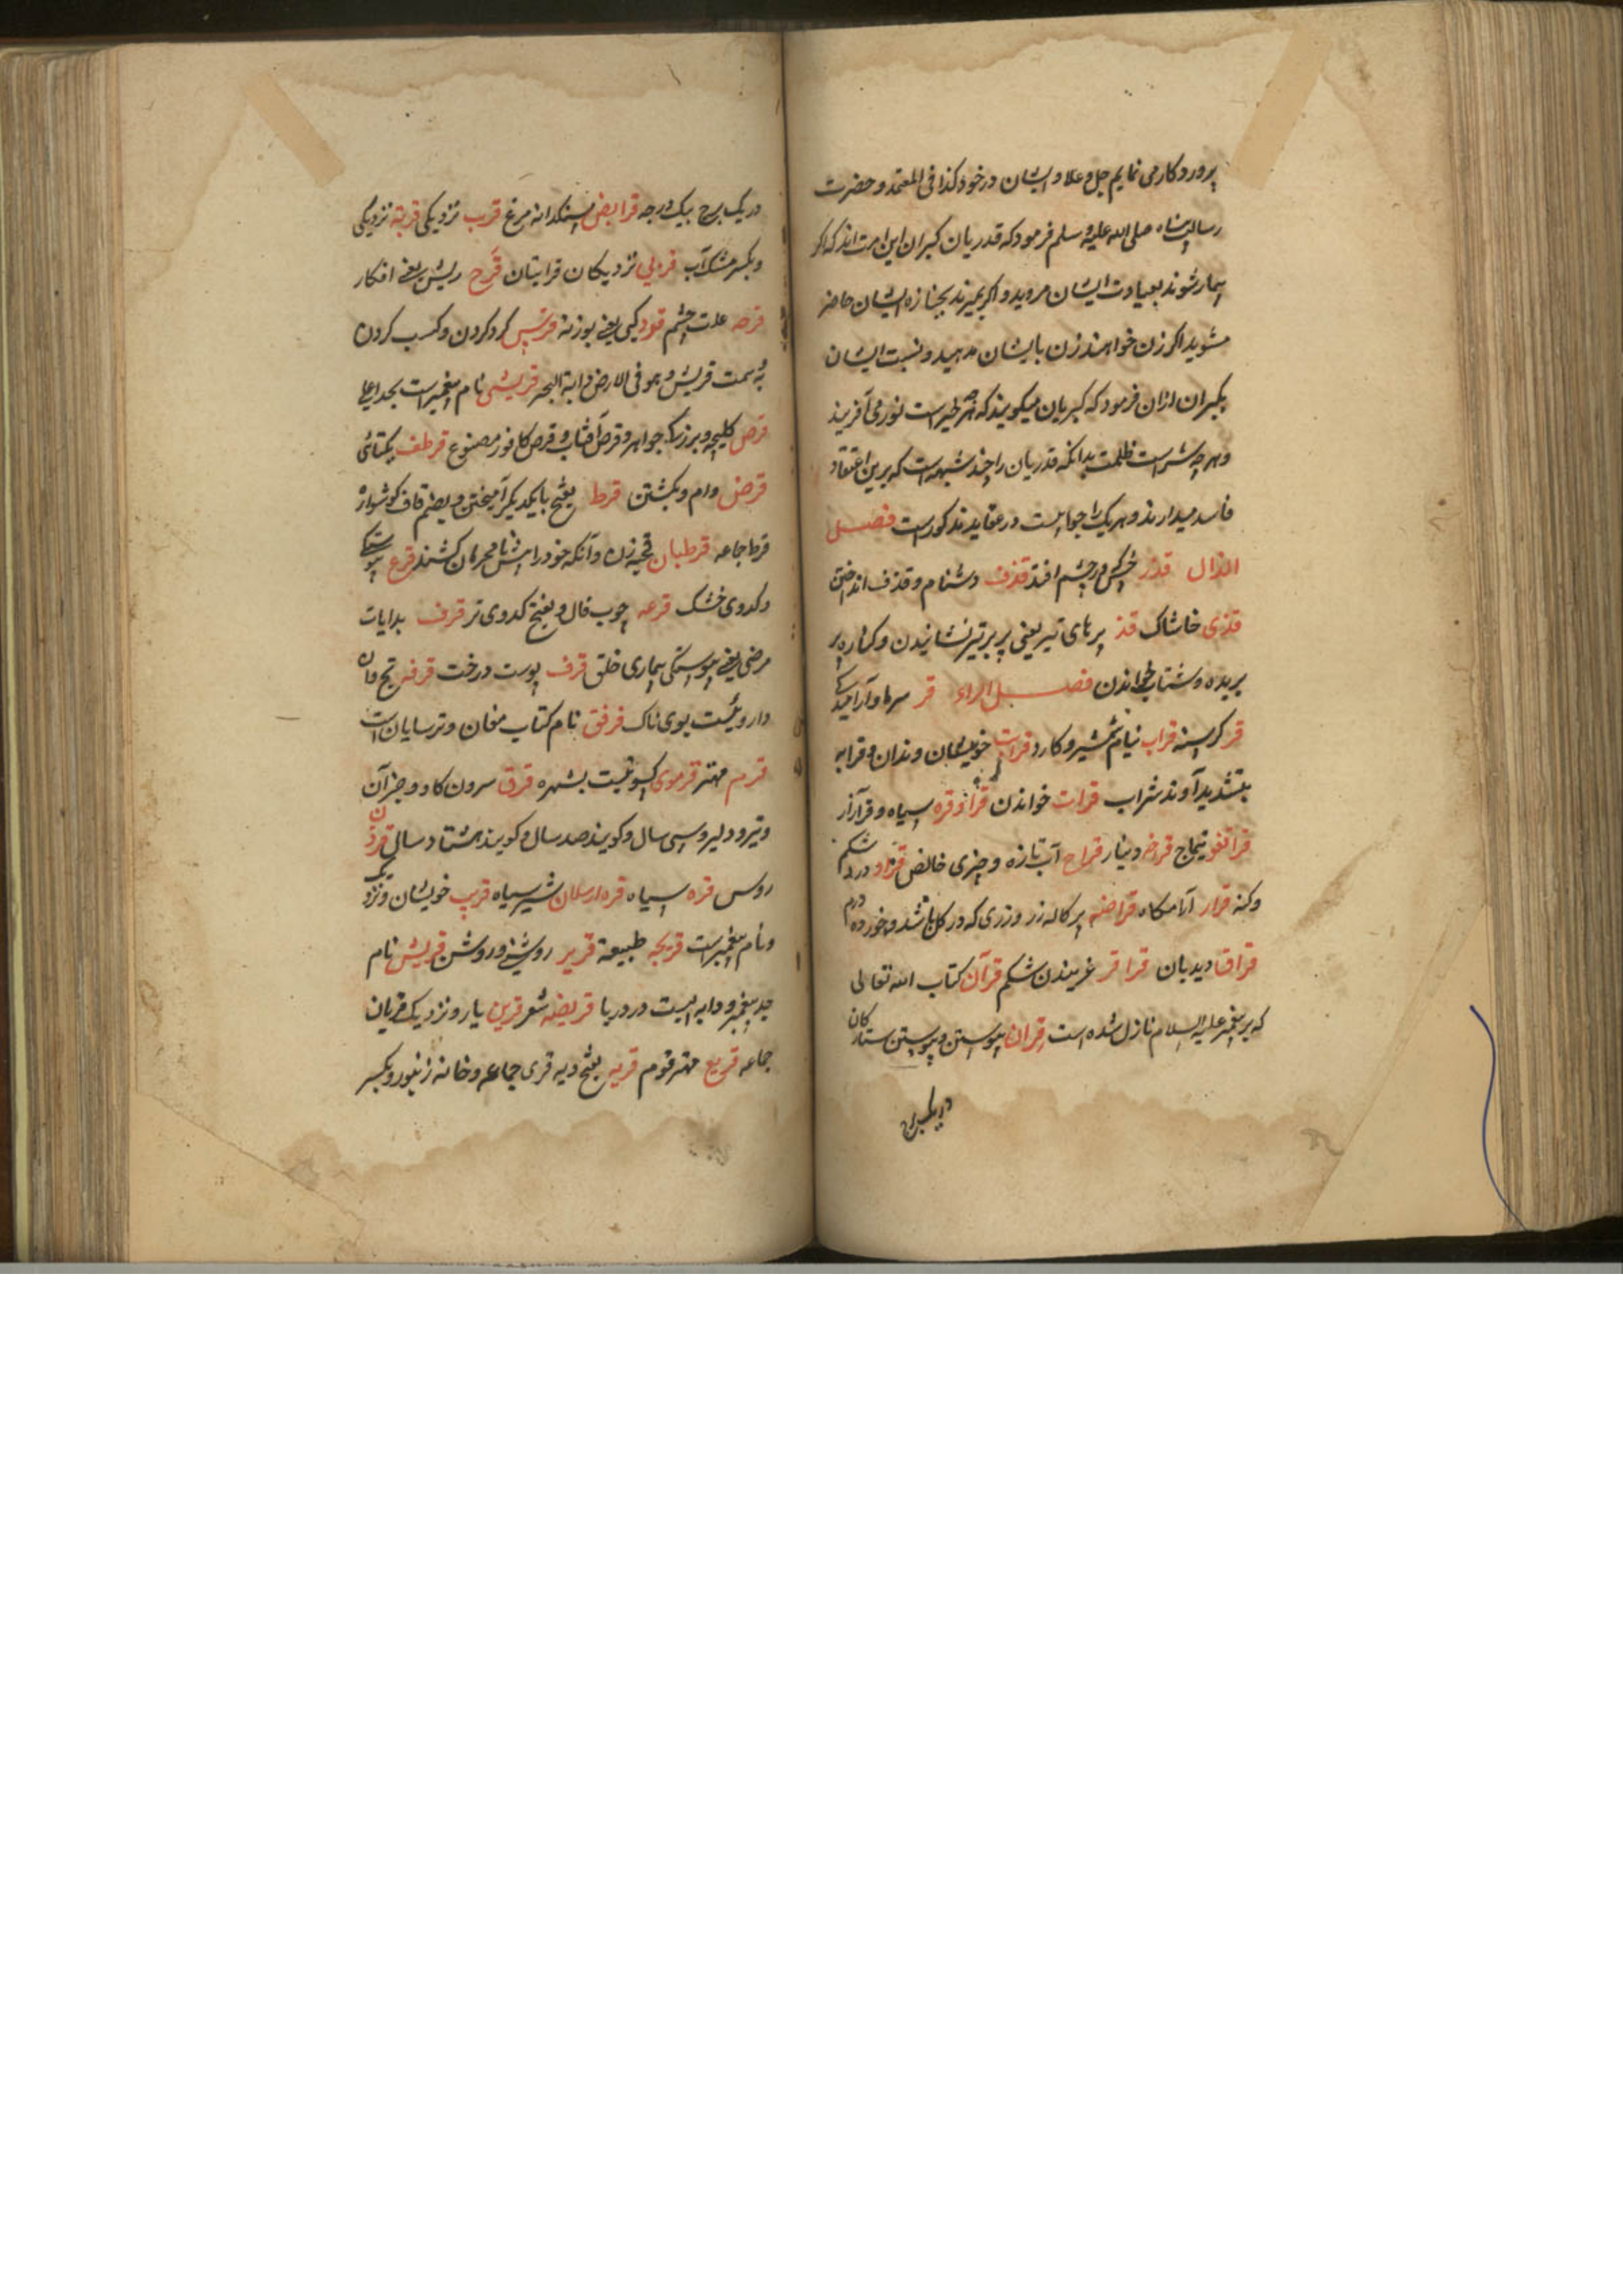 پروردکار می نمایم جل و علا و ایشان در خود کذا فی المعتمد و حضرت
رسالت پناه صلی الله علیه و سلم فرمود که قدریان کبران این امت اند که اکر
بیمار شوند بعیادت ایشان مروید و اکر بمیرند بجنازه ایشان حاضر
مشوید اکر زن خواهند زن بایشان مدهید و نسبت ایشان
بکبران ازان فرمود که کبریان میکویند که هر چه خیر است نور می آفریند
و هر چه شر است ظلمت بدانکه قدریان را چند شبهه است که برین اعتقاد
فاسد میدارند و هر یک را جوابیست در عقاید مذکور است فصل
الذال قذر خس در چشم افتد قذف دشنام و قذف انداختن
قذی خاشاک قذ پرهای تیر یعنی پر بر تیر نشانیدن و کناره پر
بریده و شتاب خواندن فصل الراء قر سرما و آرامید
قر کرسنه قراب نیام شمشیر و کارد قرابت خویشان و قرابه
بتشدید آوند شراب قرات خواندن قرا و قره سیاه و قرآزار
قراتغو تیماج قرخه دینار قراح آب تازه و چیزی خالص قراد درد شکم
و کنه قرار آرامکاه قراضه پرکاله زر و زری که در کل باشد و خورده درم
قراق دیدبان قراقر غریدن شکم قرآن کتاب الله تعالی
که بر پیغمبر علیه السلام نازل شده است قران پیوستن و پیوستن ستارکان
در یک برج
در یک برج بیک درجه قرابض سنکدانه مرغ قرب نزدیکی قربة نزدیکی
و بکسر مشک آب قربی نزدیکان قرابتان قرح ریش یعنی افکار
قرحه علت چشم قرد کپی یعنی بوزنه قرش کرد کردن و کسب کردن
به سمت قریش و هو فی الارض دابة البحر قریشی نام پیغمبر است بجد اعلی
قرص کلیچه و بزرک جواهر و قرص آفتاب و قرص کافور مصنوع قرطف یکتائی
قرض وام و بکشتن قرط بفتح بایکدیکر آمیختن و بضم قاف کوشواره
قرط جاعه قرطبان قحبه زن و آنکه خود را پیش نامحرمان کشند قرع
و کدوی خشک قرعه چوب فال و بفتح کدوی تر قرف بدایات
مرضی یعنی پیوستکی بیماری خلق قرف پوست درخت قرفه
داروئیست بوی ناک قرفق نام کتاب مغان و ترسایان است
قرم مهتر قرموی کیسو نیست بشهره قرن سرون کاو و جز آن
و تیر و دلیر و سی سال و کویند صد سال و کویند هشتاد سال
روس قره سیاه قره ارسلان شیر سیاه قریب خویشان و نزدیک
و نام پیغمبر است قریحه طبیعة قریر روشنی و روشن قریش نام
جد پیغمبر و دابه ایست در دریا قریضه شعر قرین یار و نزدیک قریان
جماعه قریع مهتر قوم قریه بفتح دیه قری جماعه و خانه زنبور و بکسر